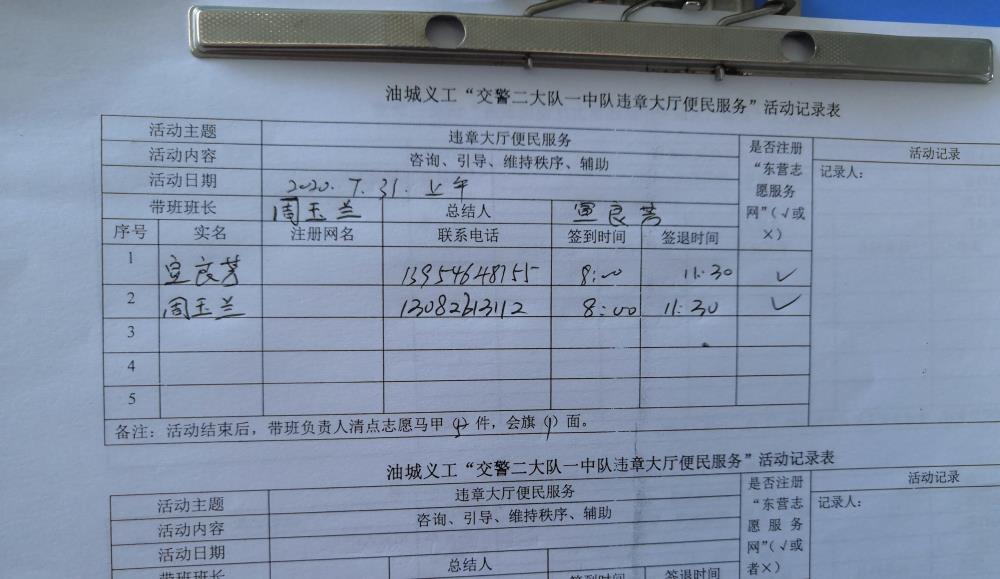 油城义工“交警二大队一中队违章大厅便民服务”活动记录表
活动主题 违章大厅便民服务 是否注册“东营志愿服务网”(√或×) 活动记录
活动内容 咨询、引导、维持秩序、辅助 记录人：
活动日期 2020.7.31.上午
带班班长 周玉兰 总结人 宣良芳
序号 实名 注册网名 联系电话 签到时间 签退时间
1 宣良芳 13954648755 8:00 11:30 ✓
2 周玉兰 8:00 11:30 ✓
3
4
5
备注：活动结束后，带班负责人清点志愿马甲( )件，会旗( )面。
油城义工“交警二大队一中队违章大厅便民服务”活动记录表
活动主题 违章大厅便民服务 是否注册“东营志愿服务网”(√或者×) 活动记录
活动内容 咨询、引导、维持秩序、辅助 记录人：
活动日期
带班班长 总结人
签到时间 签退时间